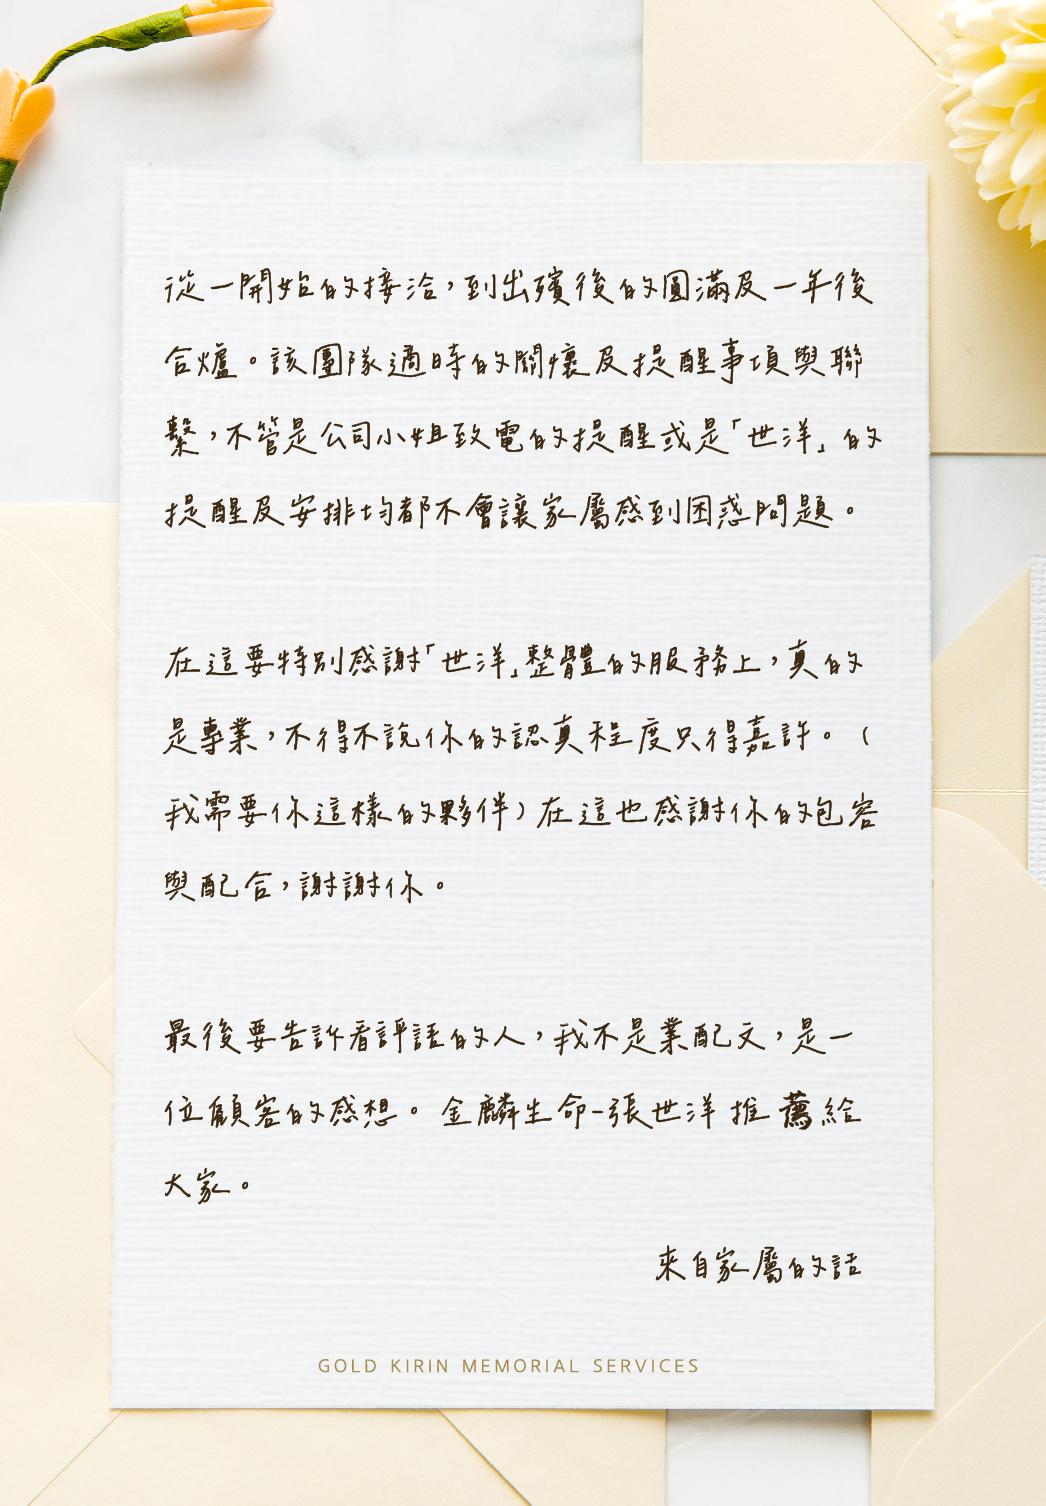 從一開始的接洽，到出殯後的圓滿及一年後
合爐。該團隊適時的關懷及提醒事項與聯
繫，不管是公司小姐致電的提醒或是「世洋」的
提醒及安排均都不會讓家屬感到困惑問題。
在這要特別感謝「世洋」整體的服務上，真的
是專業，不得不說你的認真程度只得嘉許。（
我需要你這樣的夥伴）在這也感謝你的包容
與配合，謝謝你。
最後要告訴看評語的人，我不是業配文，是一
位顧客的感想。金麟生命-張世洋 推薦給
大家。
來自家屬的話
GOLD KIRIN MEMORIAL SERVICES